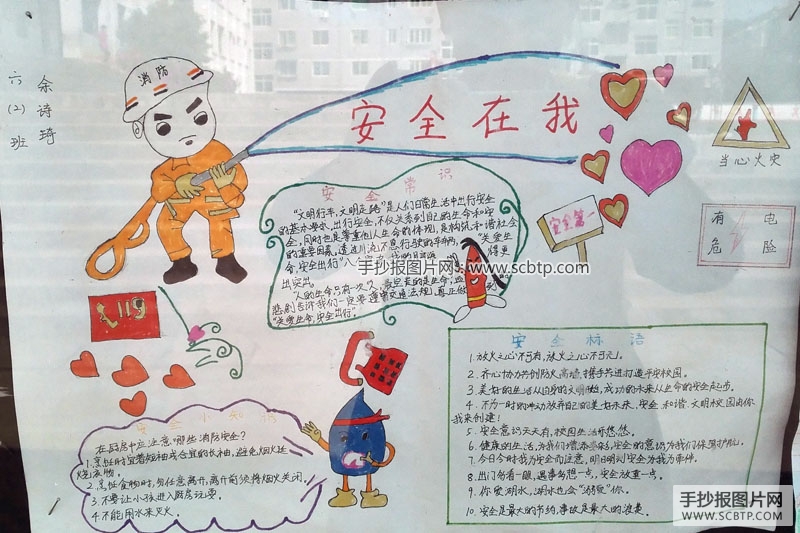 六(2)班
余诗琦
消防
安全在我
当心火灾
有电
危险
安全第一
安全常识
"文明行车,文明走路"是人们日常生活中出行安全
的基本要求、出行安全,不仅关系到自己的生命和安
全,同时也是尊重他人生命的体现,是构筑和谐社会
的重要因素,透过川流不息行驶的车辆,"关爱生
命,安全出行"
出突出.
人的生命只有一次,
悲剧告诉我们一定要遵守交通法规,真正做
"关爱生命,安全出行".
手抄报图片网 www.scbtp.com
119
安全小知识
在厨房中应注意哪些消防安全?
1.烹饪时宜着短袖或合宜的长袖,避免烟火延
烧衣物。
2.烹饪食物时,勿任意离开,离开前须将烟火关闭。
3.不要让小孩进入厨房玩耍。
4.不能用水来灭火。
安全标语
1.放火之心不可有,放火之心不可无。
2.齐心协力共创防火高墙,携手共进打造平安校园。
3.美好的生活从自身的文明做起,成功的未来从生命的安全起步。
4.不为一时的冲动放弃自己的美好未来,安全、和谐、文明校园由你
我来创建!
5.安全意识天天有,校园生活乐悠悠。
6.健康的生活,为我们增添多彩,安全的意识为我们保驾护航。
7.今日今时我为安全而注意,明日明刻安全为我为条件。
8.出门勿看一眼,遇事勿想一点,安全放重一点。
9.你爱湖水,湖水也会"清爱"你。
10.安全是最大的节约,事故是最大的浪费。
手抄报图片网
WWW.SCBTP.COM